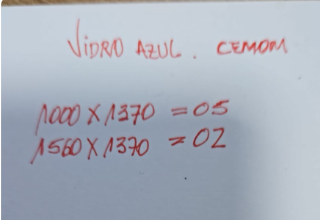 VIDRO AZUL. CEMOM
1000 X 1370 = 05
1560 X 1370 = 02